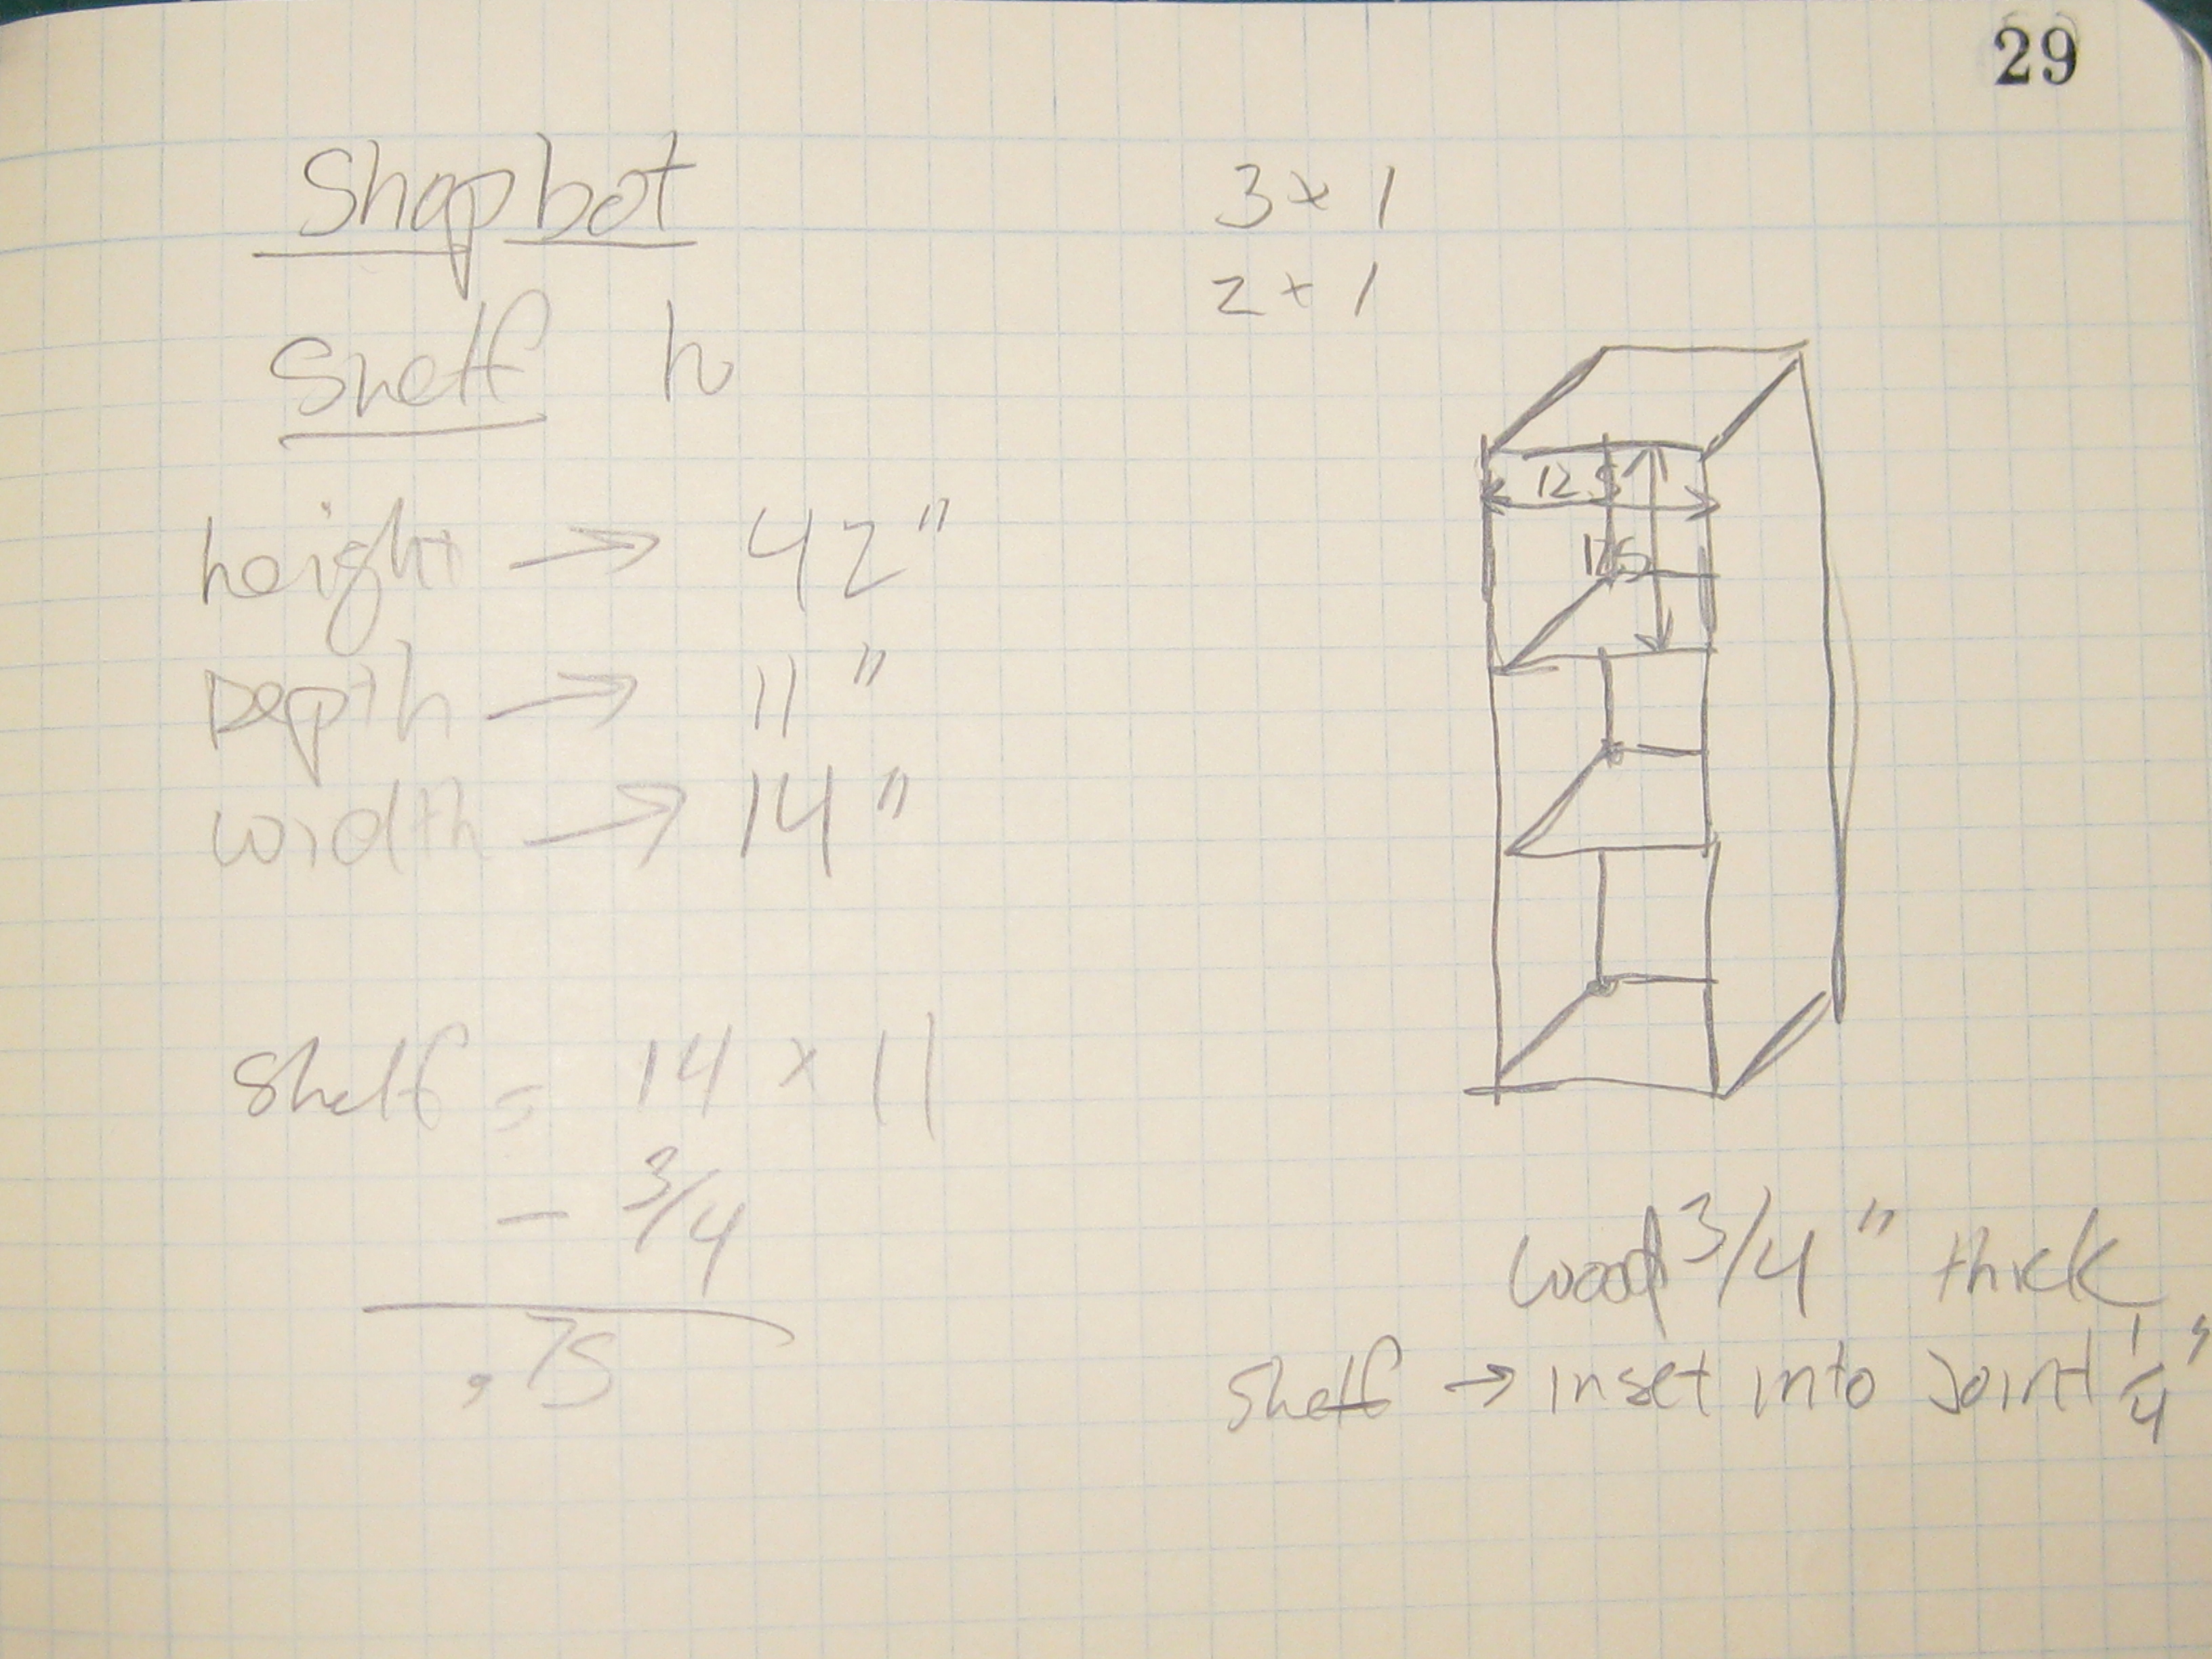 29
Shopbot
Shelf h
3 x 1
2 + 1
height → 42"
Depth → 11"
width → 14"
12.5
12.5
shelf = 14 x 11
- 3/4
.75
wood 3/4" thick
Shelf → inset into Joint 1/4"